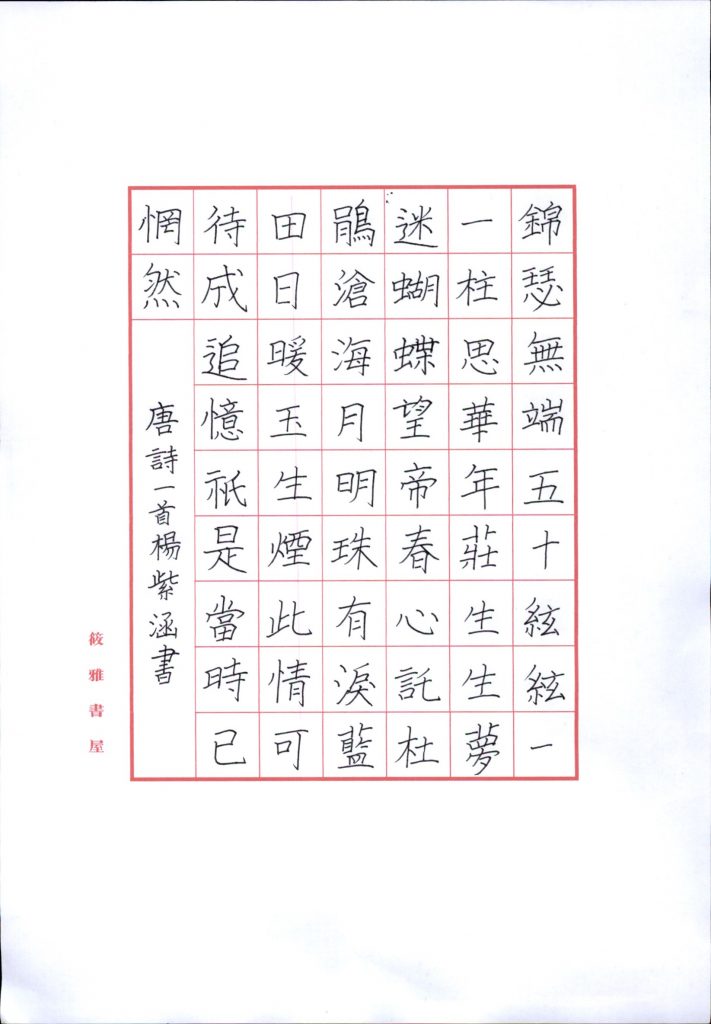 錦瑟無端五十絃絃一
一柱思華年莊生生夢
迷蝴蝶望帝春心託杜
鵑滄海月明珠有淚藍
田日暖玉生煙此情可
待成追憶祇是當時已
惘然
唐詩一首楊紫涵書
筱雅書屋